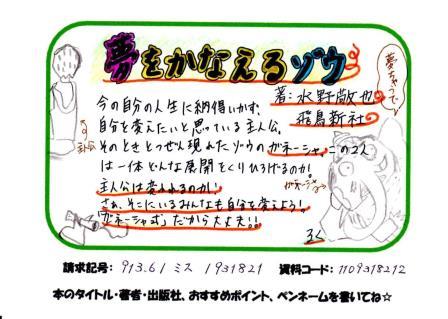 夢をかなえるゾウ
著:水野敬也
飛鳥新社
夢ちゃうで
今の自分の人生に納得いかず、
自分を変えたいと思っている主人公。
そのときとつぜん現れたゾウのガネーシャ、この2人
は一体どんな展開をくりひろげるのか!
主人公は変われるのか!
さぁ、そこにいるみんなも自分を変えよう!
「ガネーシャ式」だから大丈夫!!
主人公
ガネーシャ
請求記号: 913.61 ミス 1931821 資料コード: 1109318212
本のタイトル・著者・出版社、おすすめポイント、ペンネームを書いてね☆